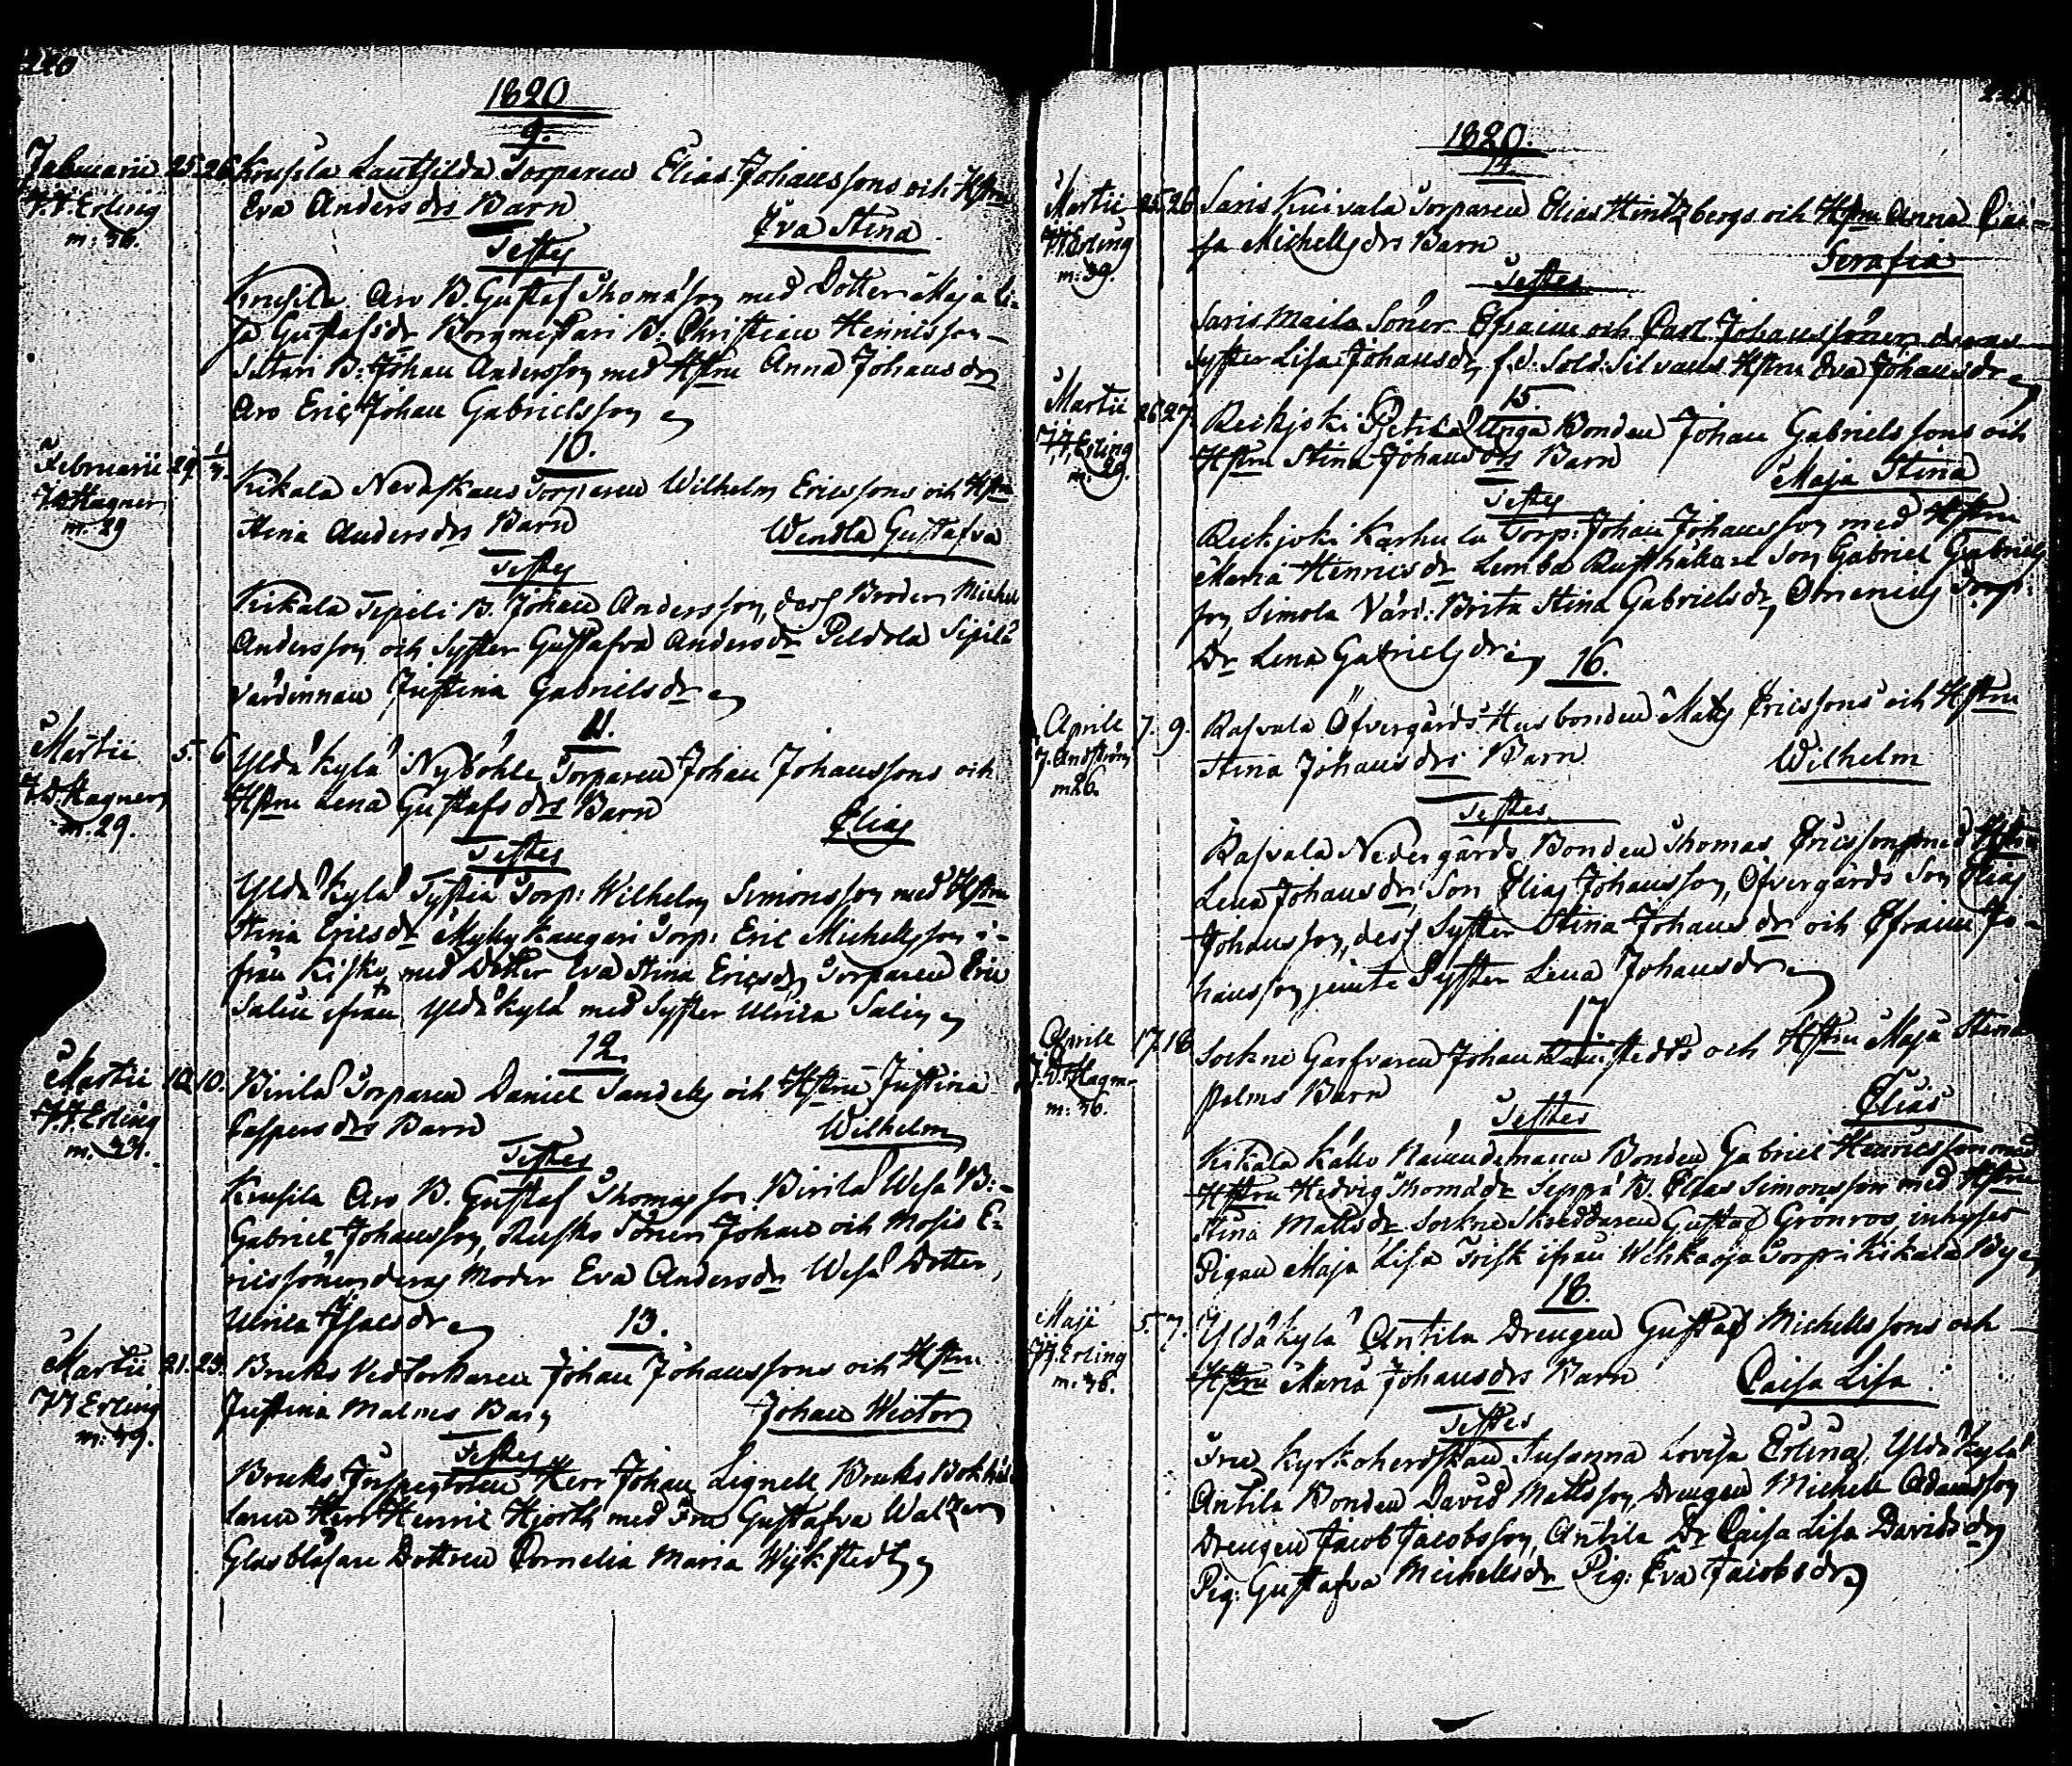 220
1820
9.
Januarii 25. 26. Krusila Torparen Elias Johanssons och Hstru
J.J. Erling Eva Andersdrs Barn
m: 36. Eva Stina
Testes
Krusila Aro B. Gustaf Thomasson med Dotter Maja Li-
sa Gustafsdr Borgmestari B. Christian Henricsson
B: Johan Andersson med Hstru Anna Johansdr
Aro Eric Johan Gabrielsson
10.
Februarii 29. 1/3. Kikala Torparen Wilhelm Ericssons och Hstru
J.D. Hagner Stina Andersdrs Barn
m: 29 Wendla Gustafva
Testes
Kikala Sepili B. Johan Andersson, dess Broder Michel
Andersson och Syster Gustafva Andersdr Peldola Sipilä
Värdinnan Justina Gabrielsdr
11.
Martii 5. 6 Yldäkylä Nyböhle Torparen Johan Johanssons och
J.D. Hagner Hstru Lena Gustafsdrs Barn
m. 29. Elias
Testes
Yldäkylä Torp: Wilhelm Simonsson med Hstru
Stina Ericsdr Myllykangari Torp: Eric Michelsson i-
från Kisko, med Dotter Eva Stina Ericsdr Torparen Eric
Salin ifrån Yldäkylä med Syster Ulrica Salin
12.
Martii 10. 10. Birilä Torparen Daniel Sandels och Hstru Justina
J.J. Erling Caspersdrs Barn
m. 37. Wilhelm
Testes
Krusila Aro B. Gustaf Thomasson Birilä Wesa B:
Gabriel Johansson, Rusko Söner Johan och Mosis E-
ricssöner deras Moder Eva Andersdr Wesa Dotter
Ulrica Isacsdr
13.
Martii 21. 23. Bruks Vedtorkaren Johan Johanssons och Hstru
J J Erling Justina Malms Barn
m. 39. Johan Wictor
Testes
Bruks Inspectoren Herr Johan Lignell Bruks Bokhål-
laren Herr Henric Hjorth med Fru Gustafva Walzer
Glasblåsare Dottren Cornelia Maria Wykstedt
221
1820.
14.
Martii 25. 26 Saris Kuivala Torparen Elias Hintzbergs och Hstru Anna Cai-
J.J. Erling sa Michelsdrs Barn
m: 39. Serafia
Testes
Saris Maila Söner Efraim och Carl Johanssöner deras
Syster Lisa Johansdr, f.d. Sold: Silvans Hstru Eva Johansdr
15.
Martii 26. 27. Reikjoki Pietila Unga Bonden Johan Gabrielssons och
J.J. Erling Hstru Stina Johansdrs Barn
m: 29. Maja Stina
Testes
Reikjoki Karhula Torp: Johan Johansson med Hstru
Maria Henricsdr Lemba Rusthållare Son Gabriel Gabriels-
son, Simola Värd: Brita Stina Gabrielsdr, Torp:
Dr Lena Gabrielsdr
16.
Aprile 7. 9. Rasvala Öfvergårds Husbonden Matts Ericssons och Hstru
J. Andström Stina Johansdrs Barn
m26. Wilhelm
Testes
Rasvala Nedergårds Bonden Thomas Ericsson med Hstru
Lena Johansdr, Son Elias Johansson, Öfvergårds Son Elias
Johansson, dess Syster Stina Johansdr och Efraim Jo-
hansson jemte Syster Lena Johansdr
17
Aprile 17. 18. Sockne Garfvaren Johan och Hstru Maja Stina
J.D. Hagner Palms Barn
m: 36. Elias
Testes
Kikala Kållo Nämndemann Bonden Gabriel Henricsson med
Hstru Hedvig Thomædr Seppä B. Elias Simonsson med Hstru
Stina Mattsdr Sockne Skräddaren Gustaf Grönros, inhyses
Pigan Maja Lisa Frisk ifrån Torp i Kikala By
18.
Maji 5. 7. Yldäkylä Antila Drengen Gustaf Michelssons och
J.J. Erling Hstru Maria Johansdrs Barn
m: 38. Caisa Lisa
Testes
Fru Kyrkoherdskan Susanna Lovisa Erling, Yldäkylä
Antila Bonden David Mattsson, Drengen Michell Adamsson
Drengen Jacob Jacobsson, Antila Dr Caisa Lisa Davidsdr
Pig: Gustafva Michelsdr Pig: Eva Jacobsdr